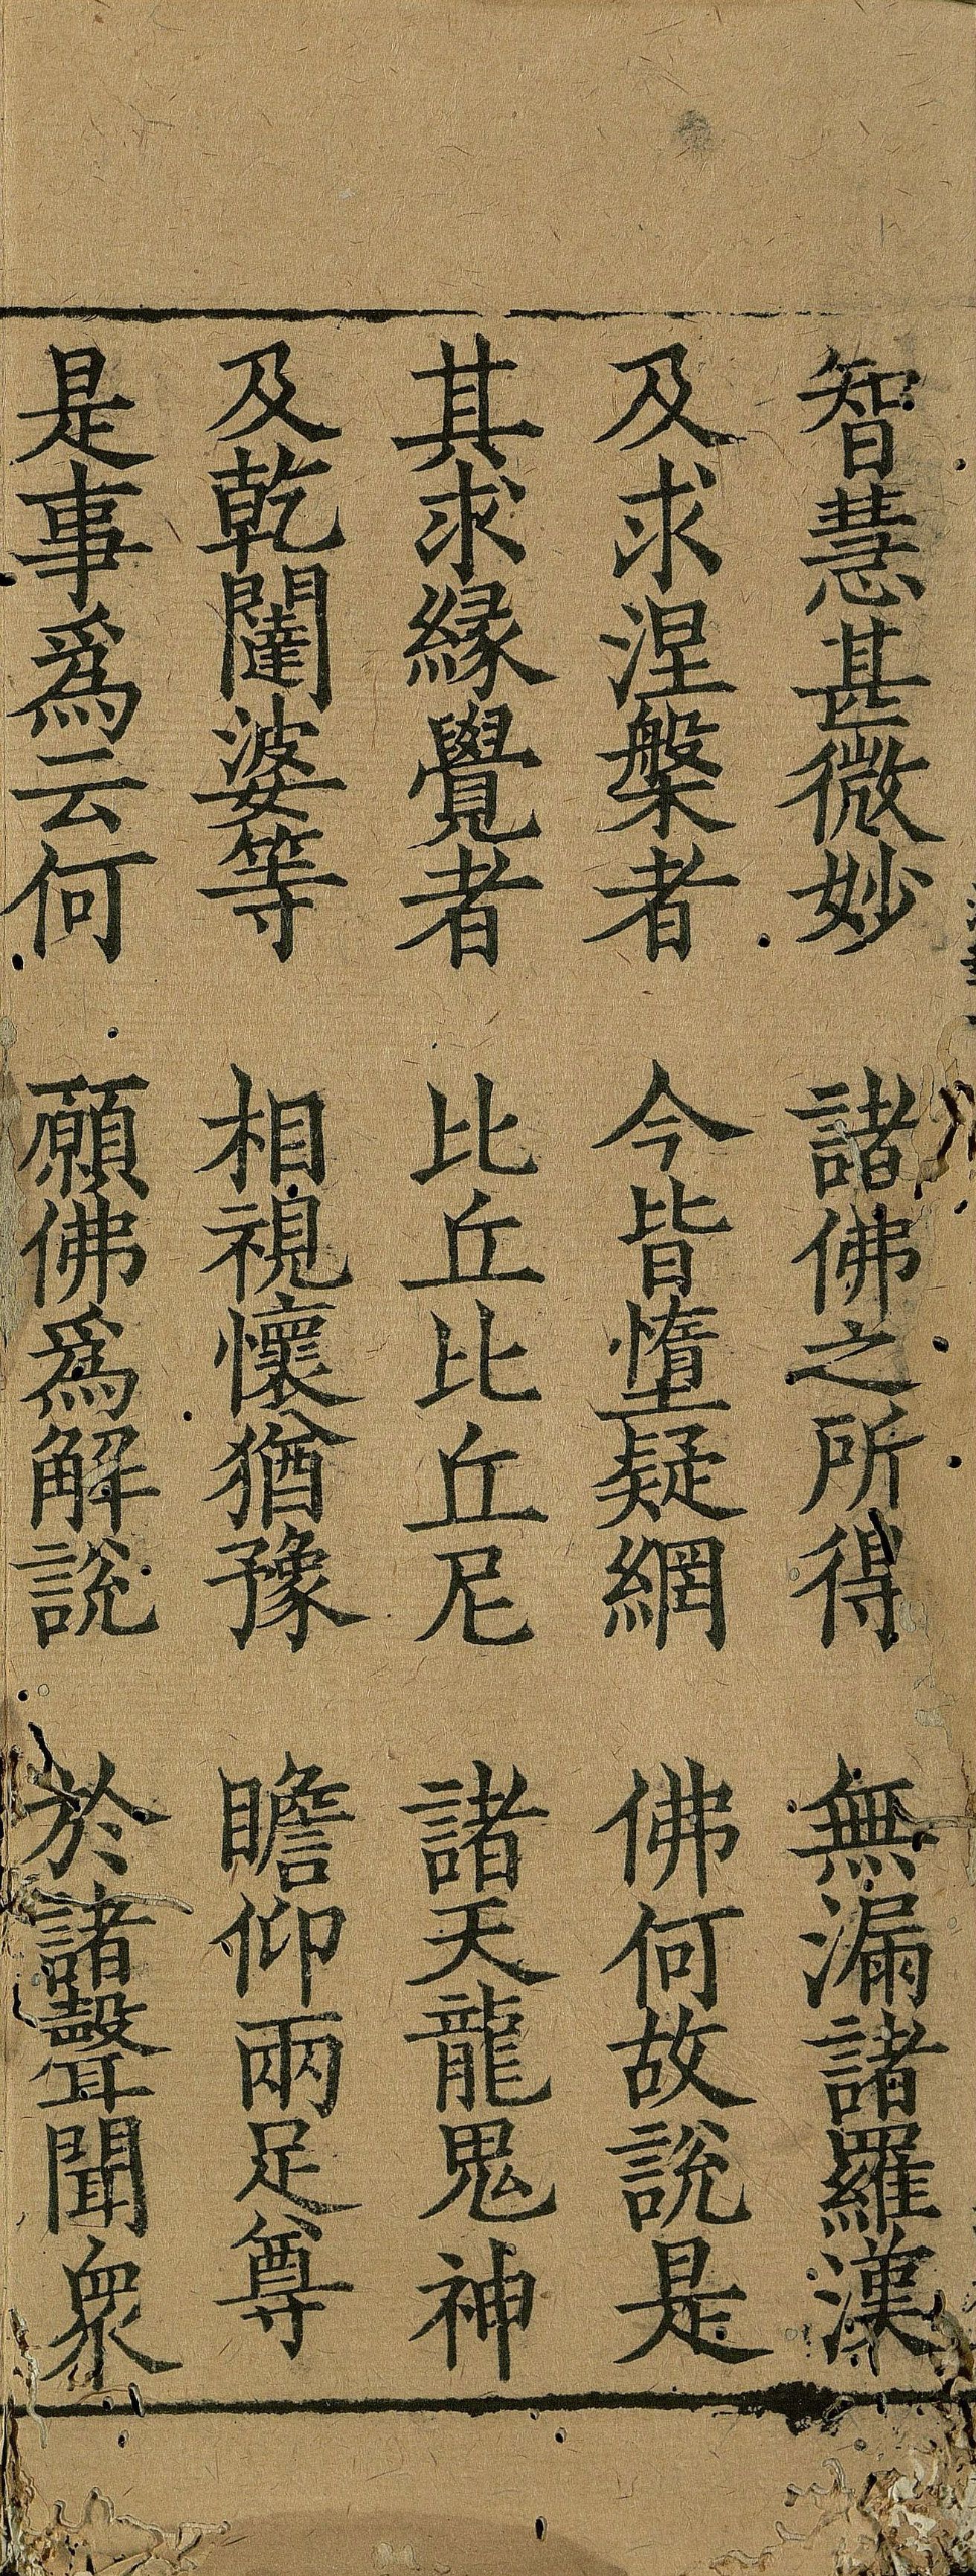 智慧甚微妙　諸佛之所得　無漏諸羅漢
及求涅槃者　今皆墮疑網　佛何故說是
其求緣覺者　比丘比丘尼　諸天龍鬼神
及乾闥婆等　相視懷猶豫　瞻仰兩足尊
是事爲云何　願佛爲解說　於諸聲聞衆